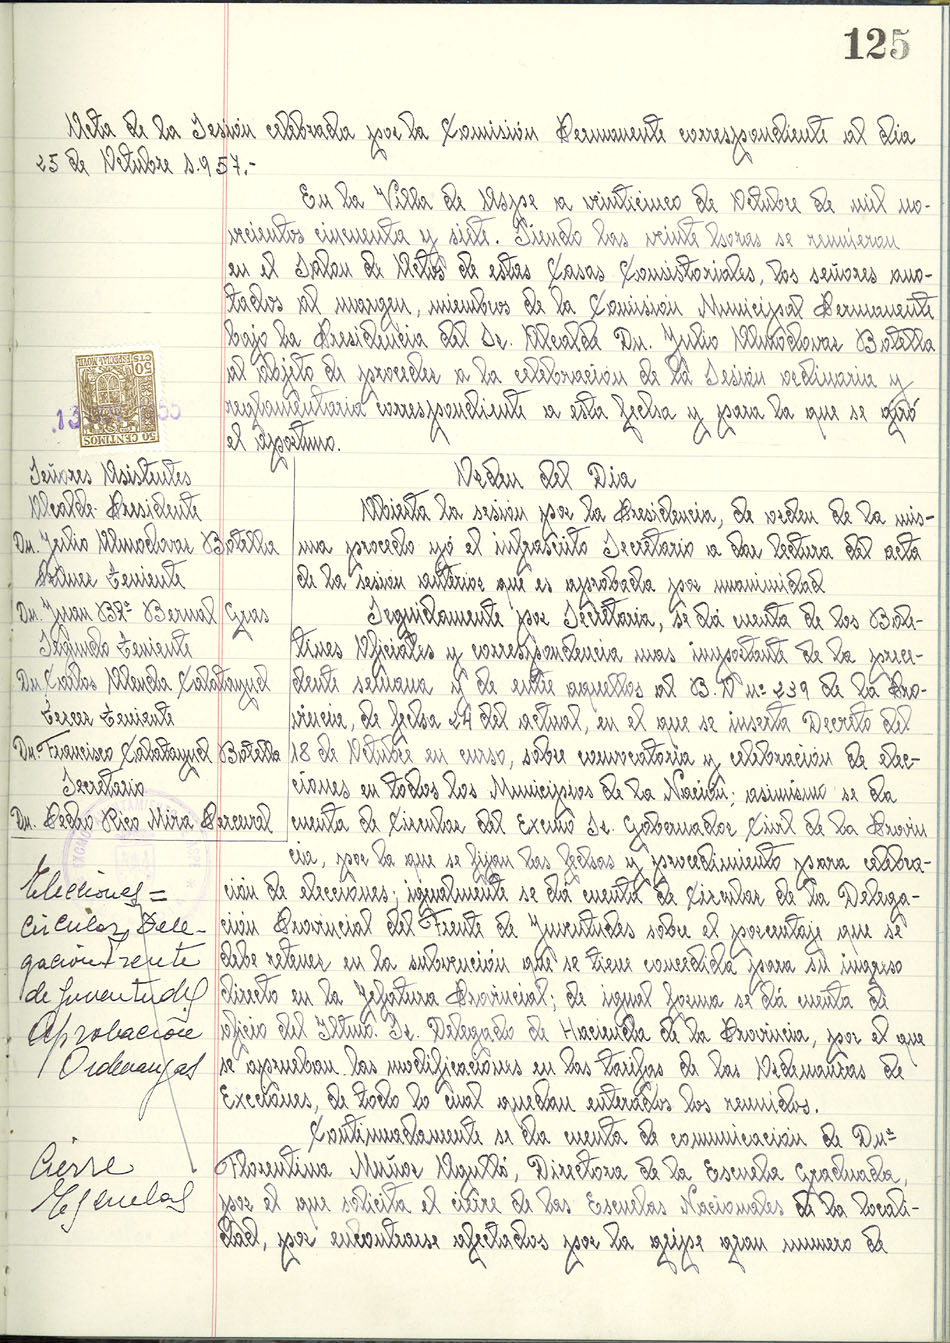 125
Acta de la Sesión celebrada por la Comisión Permanente correspondiente al dia
25 de Octubre 1.957.-
En la Villa de Aspe a veinticinco de Octubre de mil no-
vecientos cincuenta y siete. Siendo las veinte horas se reunieron
en el Salon de Actos de estas Casas Consistoriales, los señores ano-
tados al margen, miembros de la Comisión Municipal Permanente
bajo la Presidencia del Sr. Alcalde Dn. Julio Almodovar Botella
al objeto de proceder a la celebración de la Sesión ordinaria y
reglamentaria correspondiente a esta fecha y para la que se giró
el oportuno.
50 CTS
ESPECIAL MOVIL
50 CENTIMOS
Señores Asistentes
Alcalde-Presidente
Dn. Julio Almodovar Botella
Primer Teniente
Dn. Juan Btª Bernal Gras
Segundo Teniente
Dn. Carlos Alenda Calatayud
Tercer Teniente
Dn. Francisco Calatayud Botella
Secretario
Dn. Pedro Rico Mira Perceval
Orden del Dia
Abierta la sesión por la Presidencia, de orden de la mis-
ma procedo yó el infrascrito Secretario a dar lectura del acta
de la sesión anterior que es aprobada por unanimidad
Seguidamente por Secretaria, se dá cuenta de los Bole-
tines Oficiales y correspondencia mas importante de la prece-
dente semana y de entre aquellos al B.O nº 239 de la Pro-
vincia, de fecha 24 del actual, en el que se inserta Decreto del
18 de Octubre en curso, sobre convocatoria y celebración de elec-
ciones en todos los Municipios de la Nación; asimismo se da
cuenta de Circular del Excmo Sr. Gobernador Civil de la Provin
cia, por la que se fijan las fechas y procedimiento para celebra-
ción de elecciones; igualmente se dá cuenta de Circular de la Delega-
ción Provincial del Frente de Juventudes sobre el porcentaje que se
debe retener en la subvención que se tiene concedida para su ingreso
directo en la Jefatura Provincial; de igual forma se dá cuenta de
oficio del Iltmo. Sr. Delegado de Hacienda de la Provincia, por el que
se aprueban las modificaciones en las tarifas de las Ordenanzas de
Exacciones, de todo lo cual quedan enterados los reunidos.
Elecciones =
Circular Dele-
gación Frente
de Juventudes
Aprobación
Ordenanzas
Continuadamente se da cuenta de comunicación de Dnª
Florentina Muñoz Agulló, Directora de la Escuela Graduada,
por el que solicita el cierre de las Escuelas Nacionales de la locali-
dad, por encontrarse afectados por la gripe gran numero de
Cierre
Escuelas